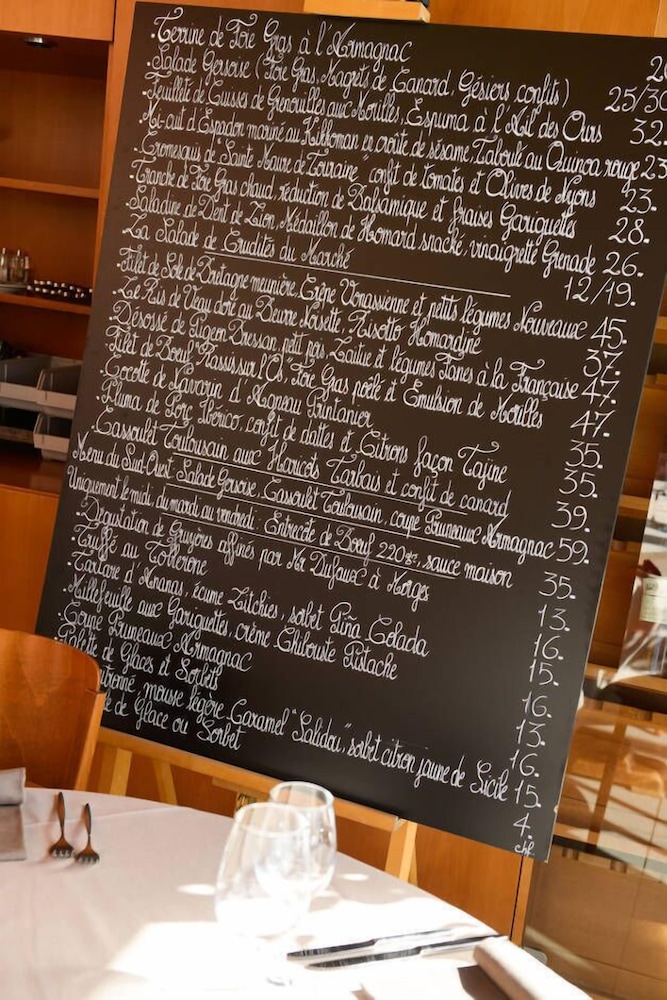 ·Terrine de Foie Gras à l'Armagnac
·Salade Gersoise (Foie Gras, Magrets de Canard, Gésiers confits) 25/30
·Feuilleté de Cuisses de Grenouilles aux Morilles, Espuma à l'Ail des Ours 32.
·Mi-cuit d'Espadon mariné au Kikkoman en croûte de sésame, Taboulé au Quinoa rouge 23
·Cromesquis de "Sainte Maure de Touraine" confit de tomates et Olives de Nyons 23.
·Tranche de Foie Gras chaud, réduction de Balsamique et fraises Gariguettes 28.
·Saladine de Dent de Lion, Médaillon de Homard snacké, vinaigrette Grenade 26.
·La Salade de Crudités du Marché 12/19.
·Filet de Sole de Bretagne meunière, Crêpe Vonassienne et petits légumes Nouveaux 45.
·Le Ris de Veau doré au Beurre Noisette, Risotto Homardine 37.
·Désossé de Pigeon Bressan, petit pois, Laitue et légumes Fanes à la Française 47.
·Filet de Bœuf "Rassis sur l'Os" Foie Gras poêlé et Emulsion de Morilles 47.
·Cocotte de Navarin d'Agneau Printanier 35.
·Pluma de Porc Ibérico, confit de dattes et Citrons façon Tajine 35.
·Cassoulet Toulousain aux Haricots Tarbais et confit de canard 39.
Menu du Sud-Ouest Salade Gersoise, Cassoulet Toulousain, coupe Pruneaux Armagnac 59.
Uniquement le midi, du mardi au vendredi: Entrecôte de Bœuf 220gr, sauce maison 35.
·Dégustation de Gruyères affinés par Mr Dufaux à Morges 13.
·Truffé au Toblerone 16.
·Tartare d'Ananas, écume Litchies, sorbet Piña Colada 15.
·Millefeuille aux Gariguettes, crème Chibouste Pistache 16.
·Coupe Pruneaux Armagnac 13.
·Palette de Glaces et Sorbets 16.
mousse légère Caramel "Salidou", sorbet citron jaune de Sicile 15.
de Glace ou Sorbet 4.
chf.